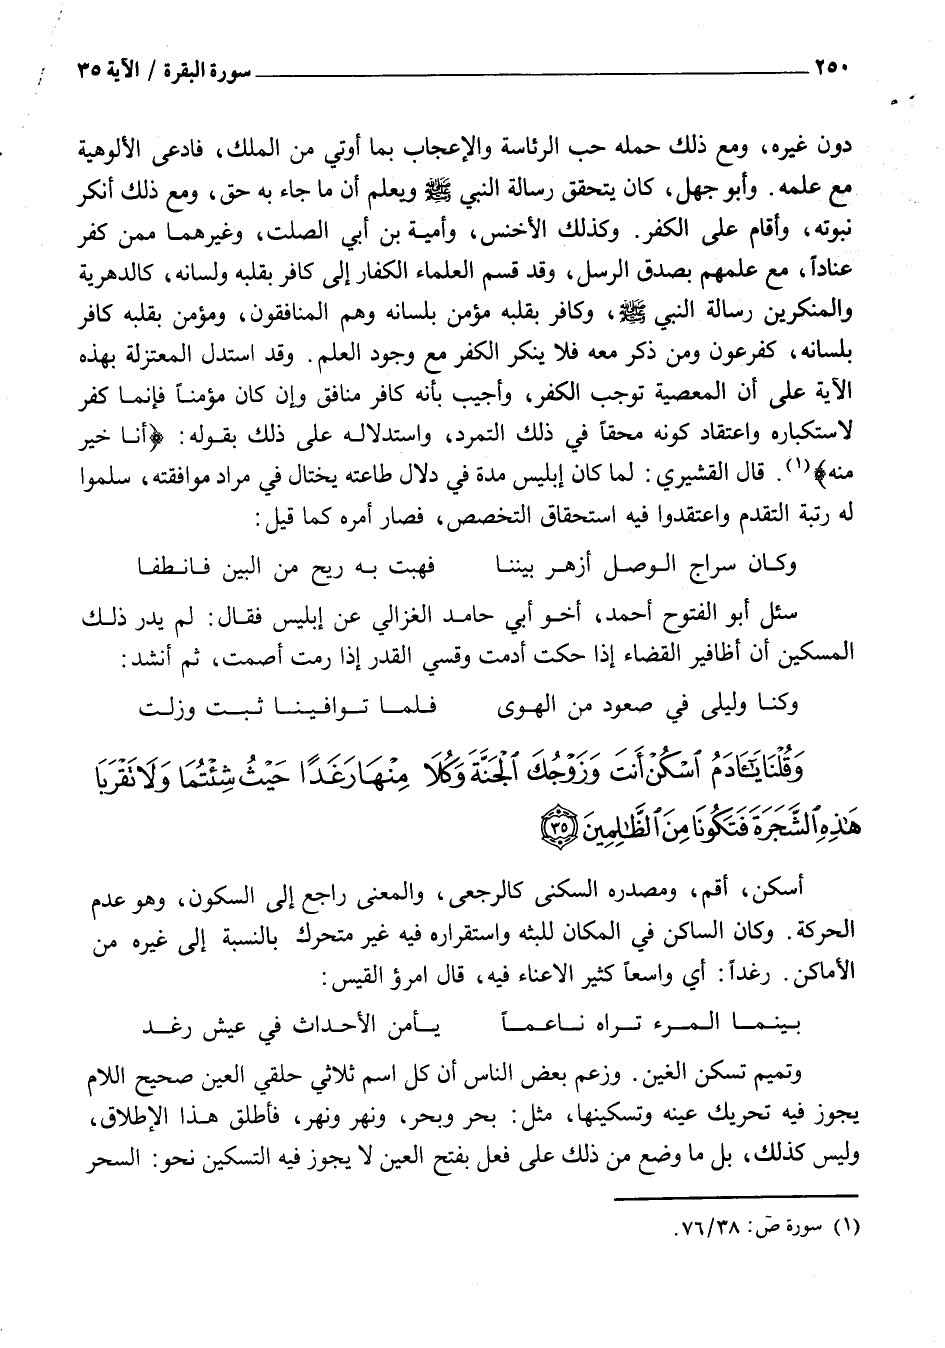 ٢٥٠ سورة البقرة / الآية ٣٥
دون غيره، ومع ذلك حمله حب الرئاسة والإعجاب بما أوتي من الملك، فادعى الألوهية
مع علمه. وأبو جهل، كان يتحقق رسالة النبي ﷺ ويعلم أن ما جاء به حق، ومع ذلك أنكر
نبوته، وأقام على الكفر. وكذلك الأخنس، وأمية بن أبي الصلت، وغيرهما ممن كفر
عناداً، مع علمهم بصدق الرسل، وقد قسم العلماء الكفار إلى كافر بقلبه ولسانه، كالدهرية
والمنكرين رسالة النبي ﷺ، وكافر بقلبه مؤمن بلسانه وهم المنافقون، ومؤمن بقلبه كافر
بلسانه، كفرعون ومن ذكر معه فلا ينكر الكفر مع وجود العلم. وقد استدل المعتزلة بهذه
الآية على أن المعصية توجب الكفر، وأجيب بأنه كافر منافق وإن كان مؤمناً فإنما كفر
لاستكباره واعتقاد كونه محقاً في ذلك التمرد، واستدلاله على ذلك بقوله: ﴿أنا خير
منه﴾(١). قال القشيري: لما كان إبليس مدة في دلال طاعته يختال في مراد موافقته، سلموا
له رتبة التقدم واعتقدوا فيه استحقاق التخصص، فصار أمره كما قيل:
وكان سراج الوصل أزهر بيننا فهبت به ريح من البين فانطفا
سئل أبو الفتوح أحمد، أخو أبي حامد الغزالي عن إبليس فقال: لم يدر ذلك
المسكين أن أظافير القضاء إذا حكت أدمت وقسي القدر إذا رمت أصمت، ثم أنشد:
وكنا وليلى في صعود من الهوى فلما توافينا ثبت وزلت
وَقُلْنَا يَـٰٓـَٔادَمُ ٱسْكُنْ أَنتَ وَزَوْجُكَ ٱلْجَنَّةَ وَكُلَا مِنْهَا رَغَدًا حَيْثُ شِئْتُمَا وَلَا تَقْرَبَا
هَـٰذِهِ ٱلشَّجَرَةَ فَتَكُونَا مِنَ ٱلظَّـٰلِمِينَ ٣٥
أسكن، أقم، ومصدره السكنى كالرجعى، والمعنى راجع إلى السكون، وهو عدم
الحركة. وكان الساكن في المكان للبثه واستقراره فيه غير متحرك بالنسبة إلى غيره من
الأماكن. رغداً: أي واسعاً كثير الاعناء فيه، قال امرؤ القيس:
بينما المرء تراه ناعماً يأمن الأحداث في عيش رغد
وتميم تسكن الغين. وزعم بعض الناس أن كل اسم ثلاثي حلقي العين صحيح اللام
يجوز فيه تحريك عينه وتسكينها، مثل: بحر وبحر، ونهر ونهر، فأطلق هذا الإطلاق،
وليس كذلك، بل ما وضع من ذلك على فعل بفتح العين لا يجوز فيه التسكين نحو: السحر
(١) سورة صٓ: ٧٦/٣٨.